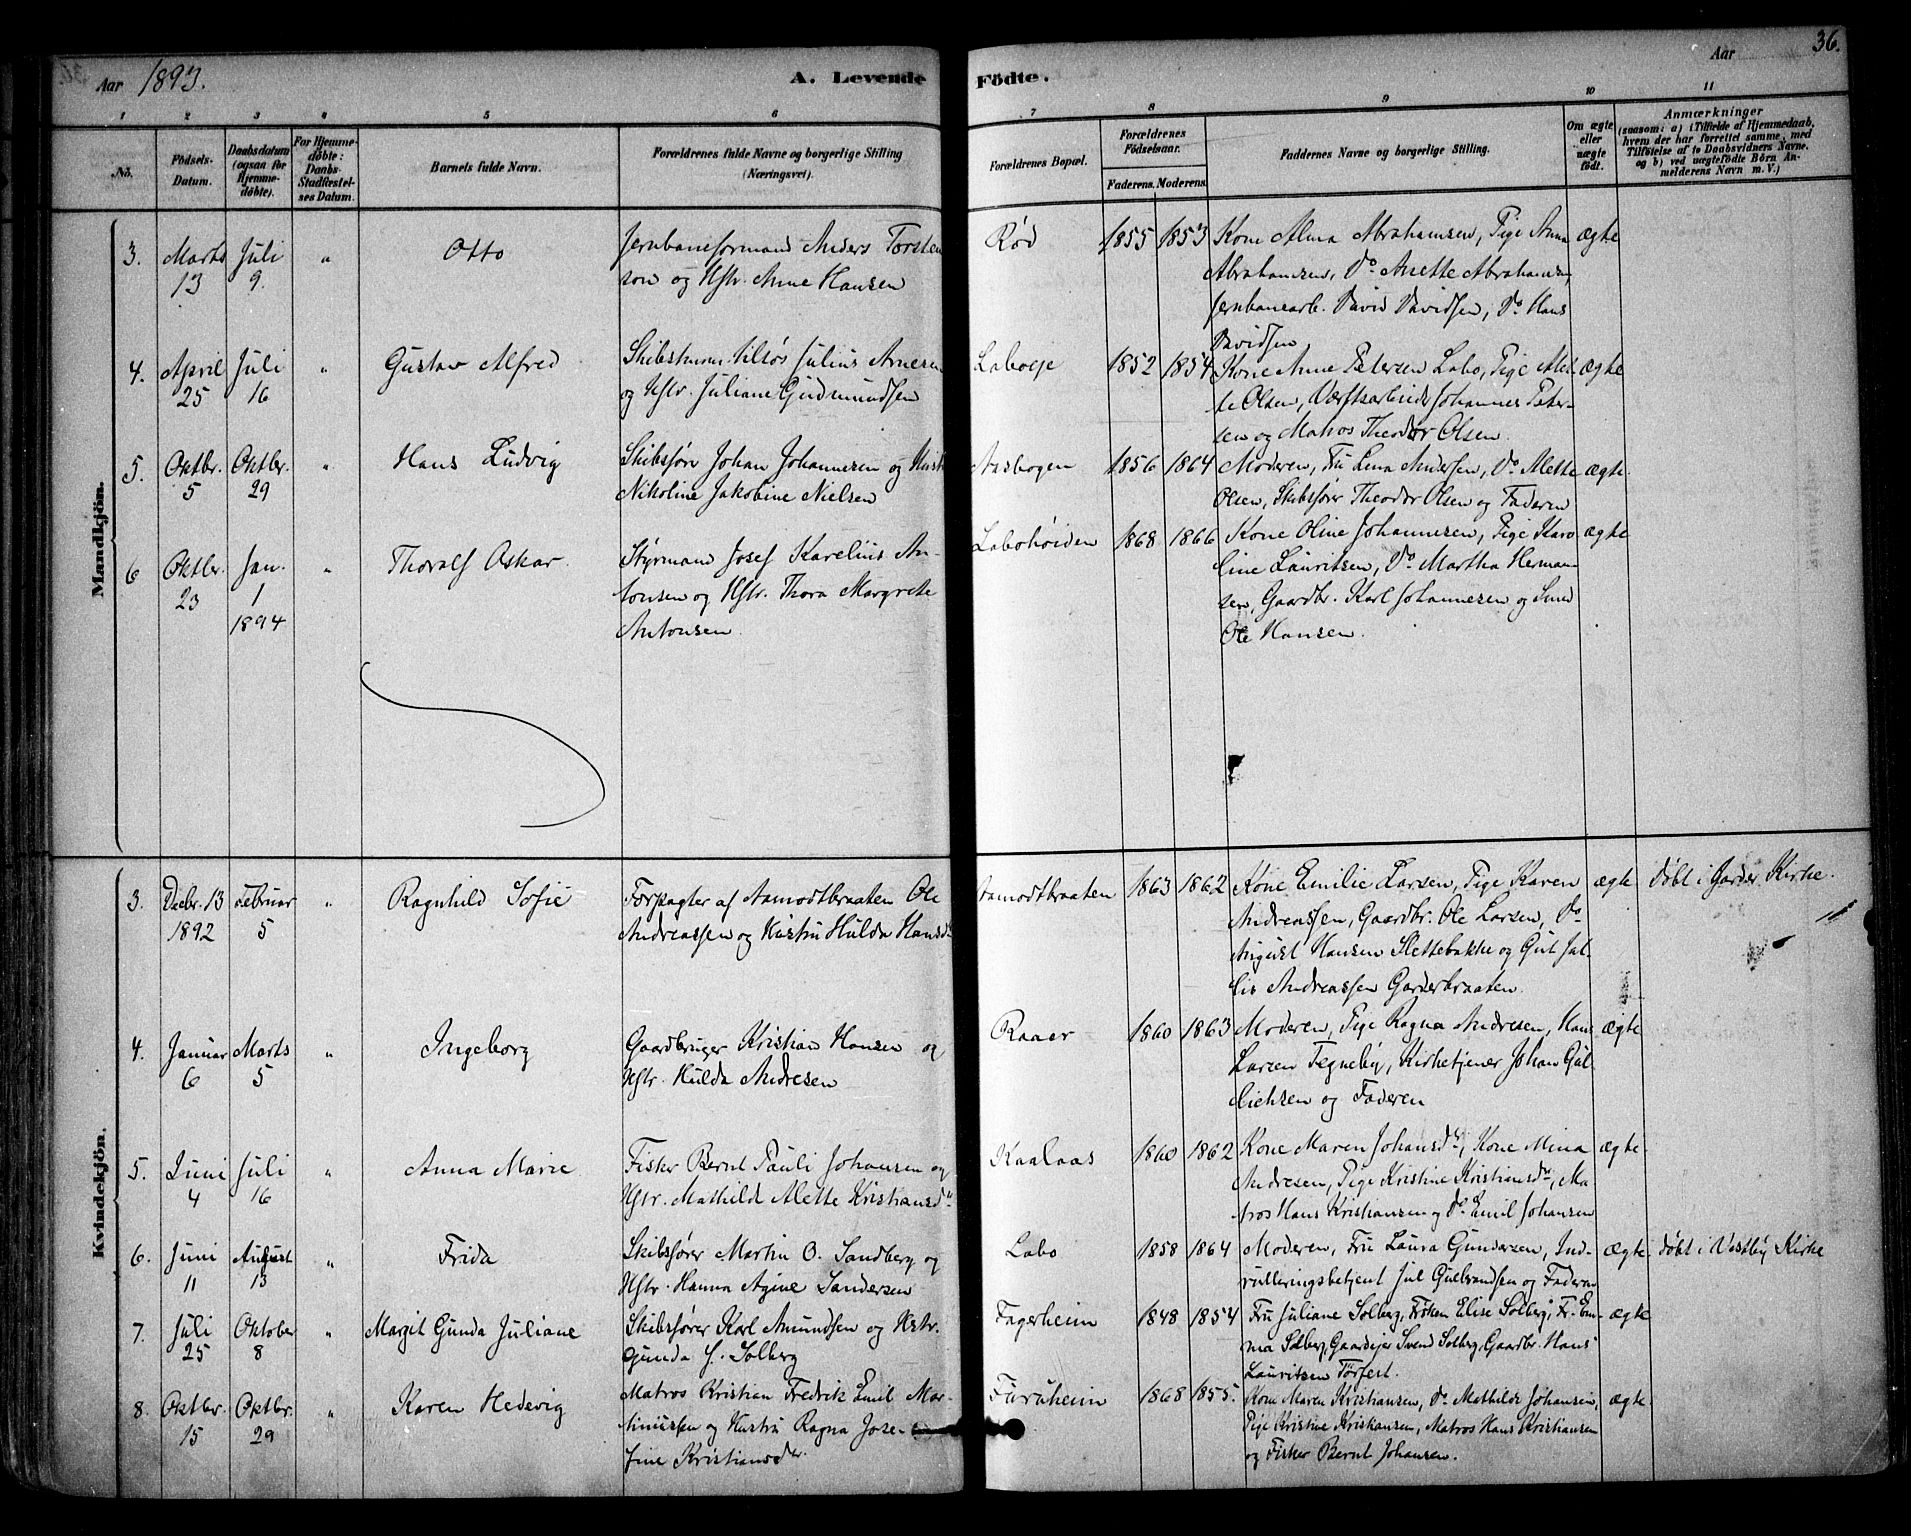 Aar 1893.
A. Levende Födte.
Aar
36.
1 2 3 4 5 6 7 8 9 10 11
No.
Födsels-
Datum.
Daabsdatum
(ogsaa for
Hjemme-
döbte).
For Hjemme-
döbte:
Daabs-
Stadfæstel-
ses Datum.
Barnets fulde Navn.
Forældrenes fulde Navne og borgerlige Stilling
(Næringsvei).
Forældrenes Bopæl.
Forældrenes
Födselsaar.
Faderens. Moderens.
Faddernes Navne og borgerlige Stilling.
Om ægte
eller
uægte
födt.
Anmærkninger
(saasom: a) i Tilfælde af Hjemmedaab,
hvem der har forrettet samme, med
Tilföielse af to Daabsvidners Navne.
og b) ved uægtefödte Börn An-
melderens Navn m. V.)
Mandkjön.
3. Marts 13
Juli 9.
"
Otto
Jernbaneformand Anders Torsten
son og Hstr. Anne Hansen
Rød
1855 1853
Kone Alma Abrahamsen, Pige Anna
Abrahamsen, Do Anette Abrahamsen,
Jernbanearb. David Davidsen, Do Hans
Davidsen
ægte
4. April 25
Juli 16
"
Gustav Alfred
Skibstømm. Julius Arnesen
og Hstr. Juliane Gudmundsen
Laboeje
1852 1854
Kone Anne Petersen Labo, Pige Alet-
te Olsen, Værftsarbeider Johannes Peter-
sen og Matros Theodor Olsen.
ægte
5. Oktbr. 5
Oktbr. 29
"
Hans Ludvig
Skibsfører Johan Johannesen og Hustr
Nikoline Jakobine Nielsen
Aasbogen
1856 1864
Moderen, Fru Lena Andersen, Do Alette
Olsen, Skibsfører Theodor Olsen og Faderen
ægte.
6 Oktbr. 23
Jan. 1 1894
"
Thoralf Oskar.
Styrmann Josef Karelius An-
tonsen og Hstr. Thora Margrete
Antonsen.
Labohøiden
1868 1866
Kone Oline Johannesen, Pige Karo
line Lauritsen, Do Martha Herman-
sen, Gaardbr. Karl Johannesen og Smed
Ole Hansen.
ægte
Kvindekjön.
3. Decbr. 13 1892
Februar 5
"
Ragnhild Sofie
Forpagter af Aamodtbraaten Ole
Andreassen og Hustru Hulda Hansdr
Aamodtbraaten
1863 1862
Kone Emilie Larsen, Pige Karen
Andreassen, Gaardbr. Ole Larsen, Do
August Hansen Slettebakke og Gut Jul-
lis Andreassen Garderbraaten.
ægte
døbt i Garder Kirke.
4. Januar 6
Marts 5
"
Ingeborg
Gaardbruger Kristian Hansen og
Hstr. Hulda Andresen
Raaer
1860 1863
Moderen, Pige Ragna Andresen, Hans
Larsen Tegneby, Kirketjener Johan Gul
lichsen og Faderen
ægte
5. Juni 4
Juli 16
"
Anna Marie
Fisker Bernt Pauli Johansen og
Hstr. Mathilde Alette Kristiansdr
Kaalaas
1860 1862
Kone Maren Johansdr, Kone Mina
Andresen, Pige Kristine Kristiansdr, Ma-
tros Hans Kristiansen og Do Emil Johansen
ægte.
6. Juni 11
August 13
"
Frida
Skibsfører Martin O. Sandberg og
Hstr. Hanna Agine Sandersen
Labo
1858 1864
Moderen, Fru Laura Gundersen, Ind-
rulleringsbetjent Jul Gulbrandsen og Faderen
ægte.
døbt i Vestby Kirke
7. Juli 25
Oktober 8
"
Margit Gunda Juliane
Skibsfører Karl Amundsen og Hstr.
Gunda J. Solberg
Fagerheim
1848 1854
Fru Juliane Solberg, Frøken Elise Solberg, Fr. Em-
ma Solberg, Gaardejer Svend Solberg, Gaardbr. Hans
Lauritsen Torfest.
ægte
8. Oktbr. 15
Oktbr. 29
"
Karen Hedevig
Matros Kristian Fredrik Emil Mar-
tinussen og Hustru Ragna Jose-
fine Kristiansdr
Furuheim
1868 1855.
Kone Maren Kristiansen, Do Mathilde Johansen,
Pige Kristine Kristiansen, Matros Hans Kristiansen
og Fisker Bernt Johansen.
ægte.